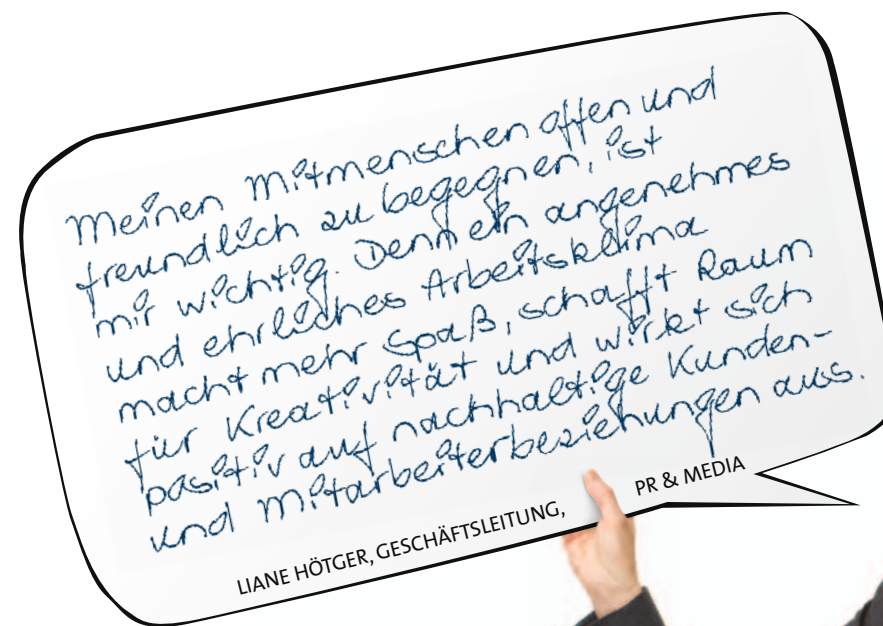 Meinen Mitmenschen offen und
freundlich zu begegnen, ist
mir wichtig. Denn ein angenehmes
und ehrliches Arbeitsklima
macht mehr Spaß, schafft Raum
für Kreativität und wirkt sich
positiv auf nachhaltige Kunden-
und Mitarbeiterbeziehungen aus.
LIANE HÖTGER, GESCHÄFTSLEITUNG, PR & MEDIA